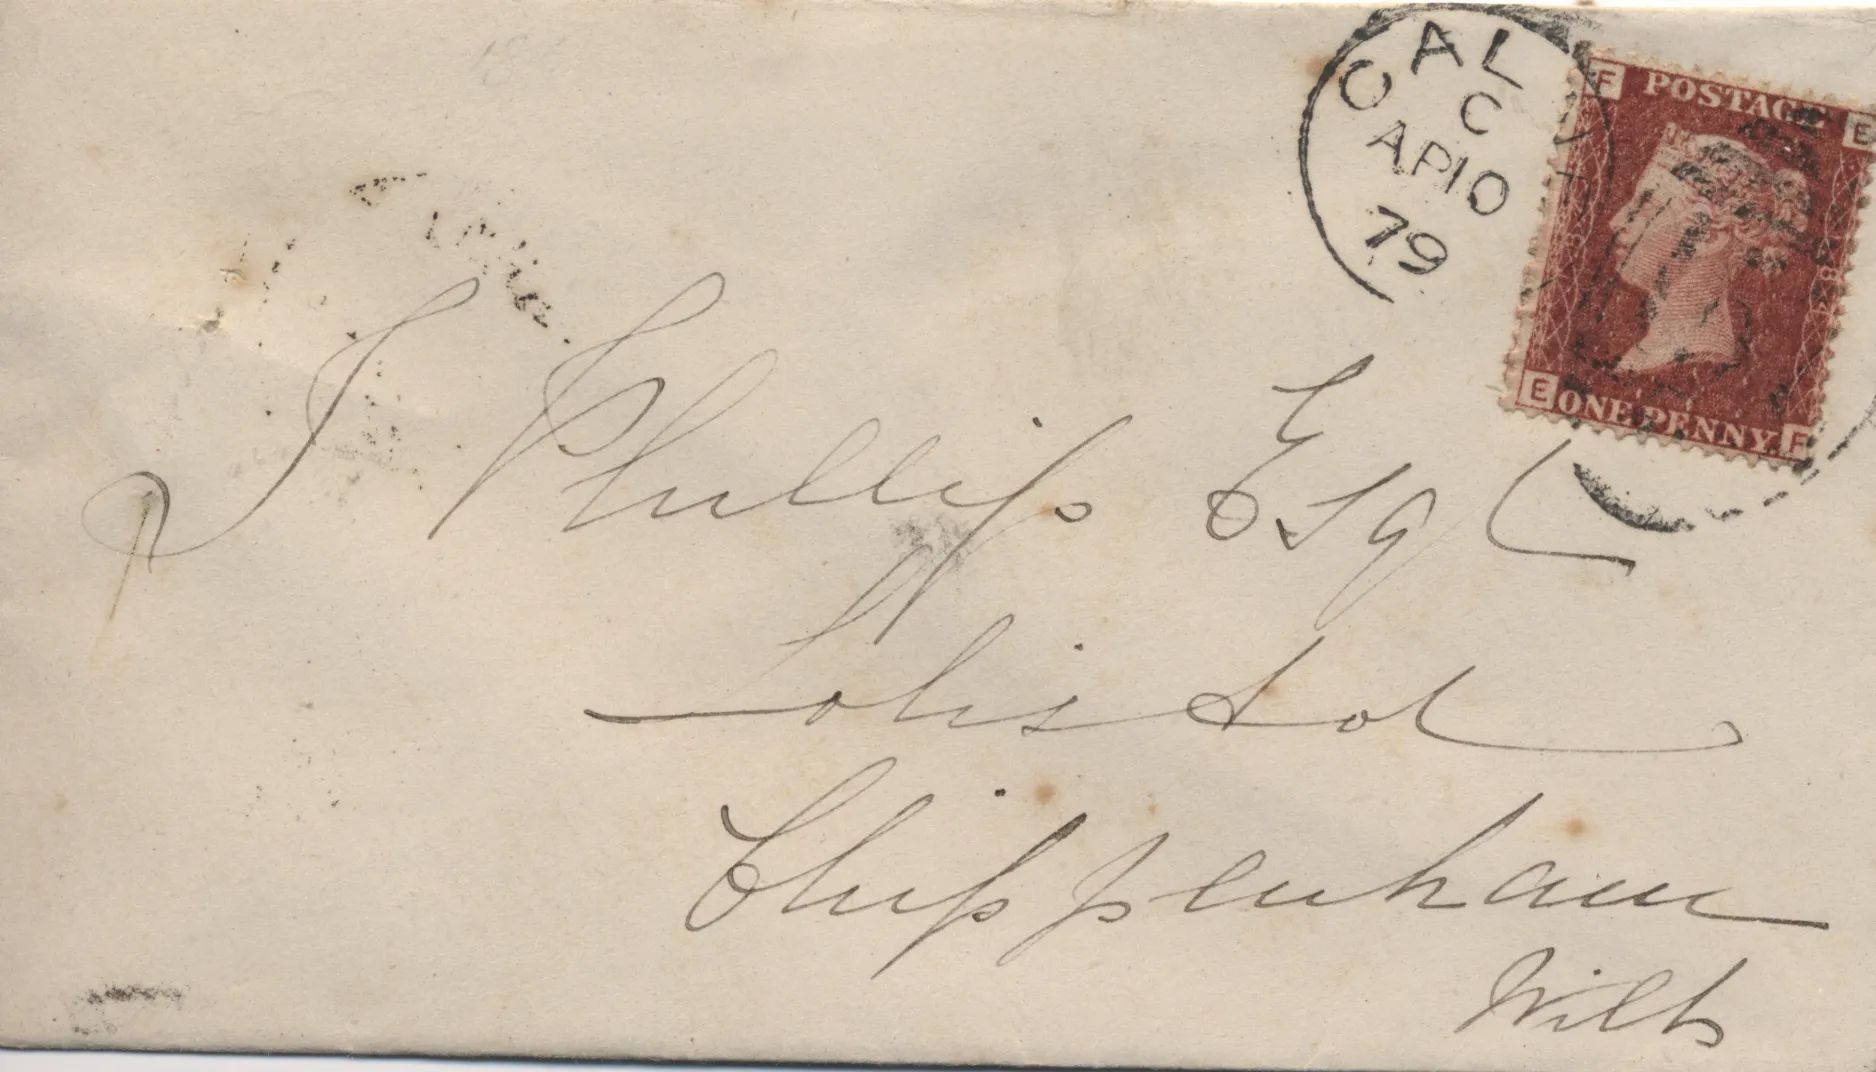 CALNE
C
AP10
79
F POSTAGE E
E ONE PENNY. F
J Phillips Esq
Solicitor
Chippenham
Wilts